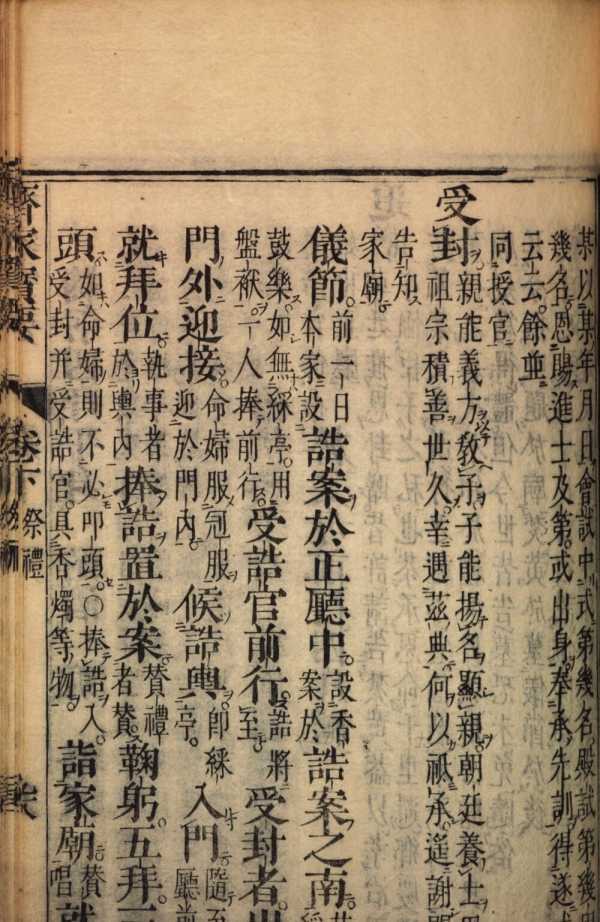 某以某年月日會試中式第幾名殿試第幾甲
幾名恩賜進士及第或出身奉承先訓得遂
云云餘並
同授官
受封親能義方教子子能揚名顯親朝廷養士
祖宗積善世久幸遇茲典何以祗承遙謝
告知
家廟
儀節前一日本家設誥案於正廳中設香案於誥案之南
鼓樂如無綵亭用盤袱一人捧前行受誥官前行誥將至受封者出
門外迎接命婦服冠服迎於門內候誥輿即綵亭入門隨至廳前
就拜位執事者於輿內捧誥置於案贊禮者贊鞠躬五拜三
頭如命婦則不必叩頭○捧誥入受封并受誥官具香燭等物詣家廟贊唱就
齊家寶要 卷下 祭禮